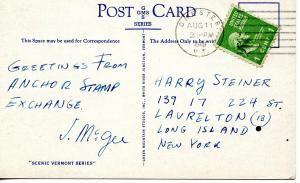 POST CARD
GMS
SERIES
This Space may be used for Correspondence
The Address Only to be Written
AUG 11
GREETINGS FROM
ANCHOR STAMP
EXCHANGE.
J. McGee
HARRY STEINER
139 17 224 ST.
LAURELTON (13)
LONG ISLAND
NEW YORK
"SCENIC VERMONT SERIES"
GREEN MOUNTAIN STUDIOS, INC. WHITE RIVER JUNCTION, VERMONT